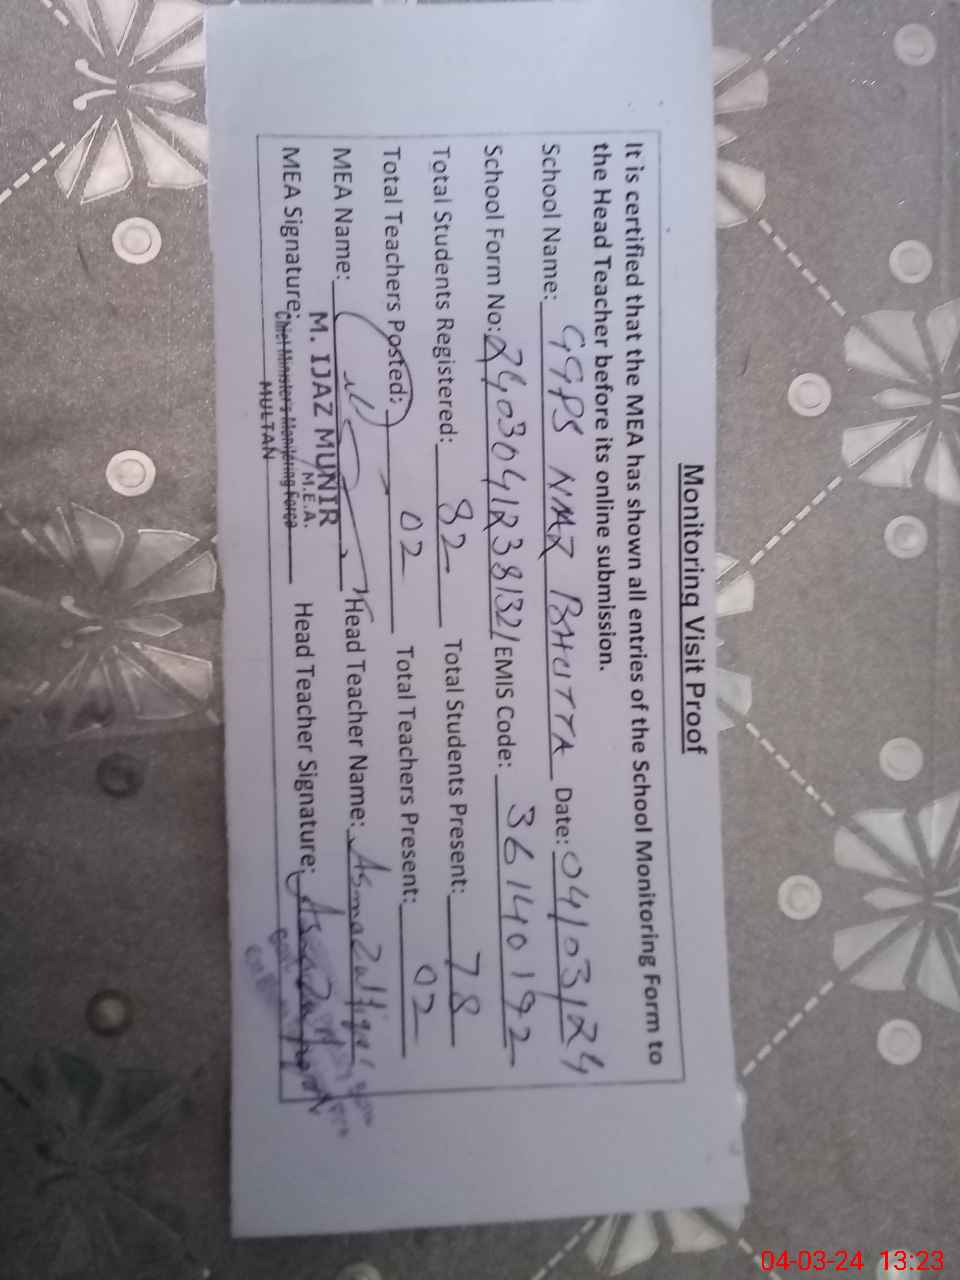 Monitoring Visit Proof
It is certified that the MEA has shown all entries of the School Monitoring Form to
the Head Teacher before its online submission.
School Name: GGPS NAZ BHUTTA Date: 04/03/24
School Form No: 24030412381321 EMIS Code: 36140192
Total Students Registered: 82 Total Students Present: 78
Total Teachers Posted: 02 Total Teachers Present: 02
MEA Name: Head Teacher Name: Asma Zulfiqar
M. IJAZ MUNIR
M.E.A.
MEA Signature: Chief Minister's Monitoring Force Head Teacher Signature: Asma
MULTAN
04-03-24 13:23